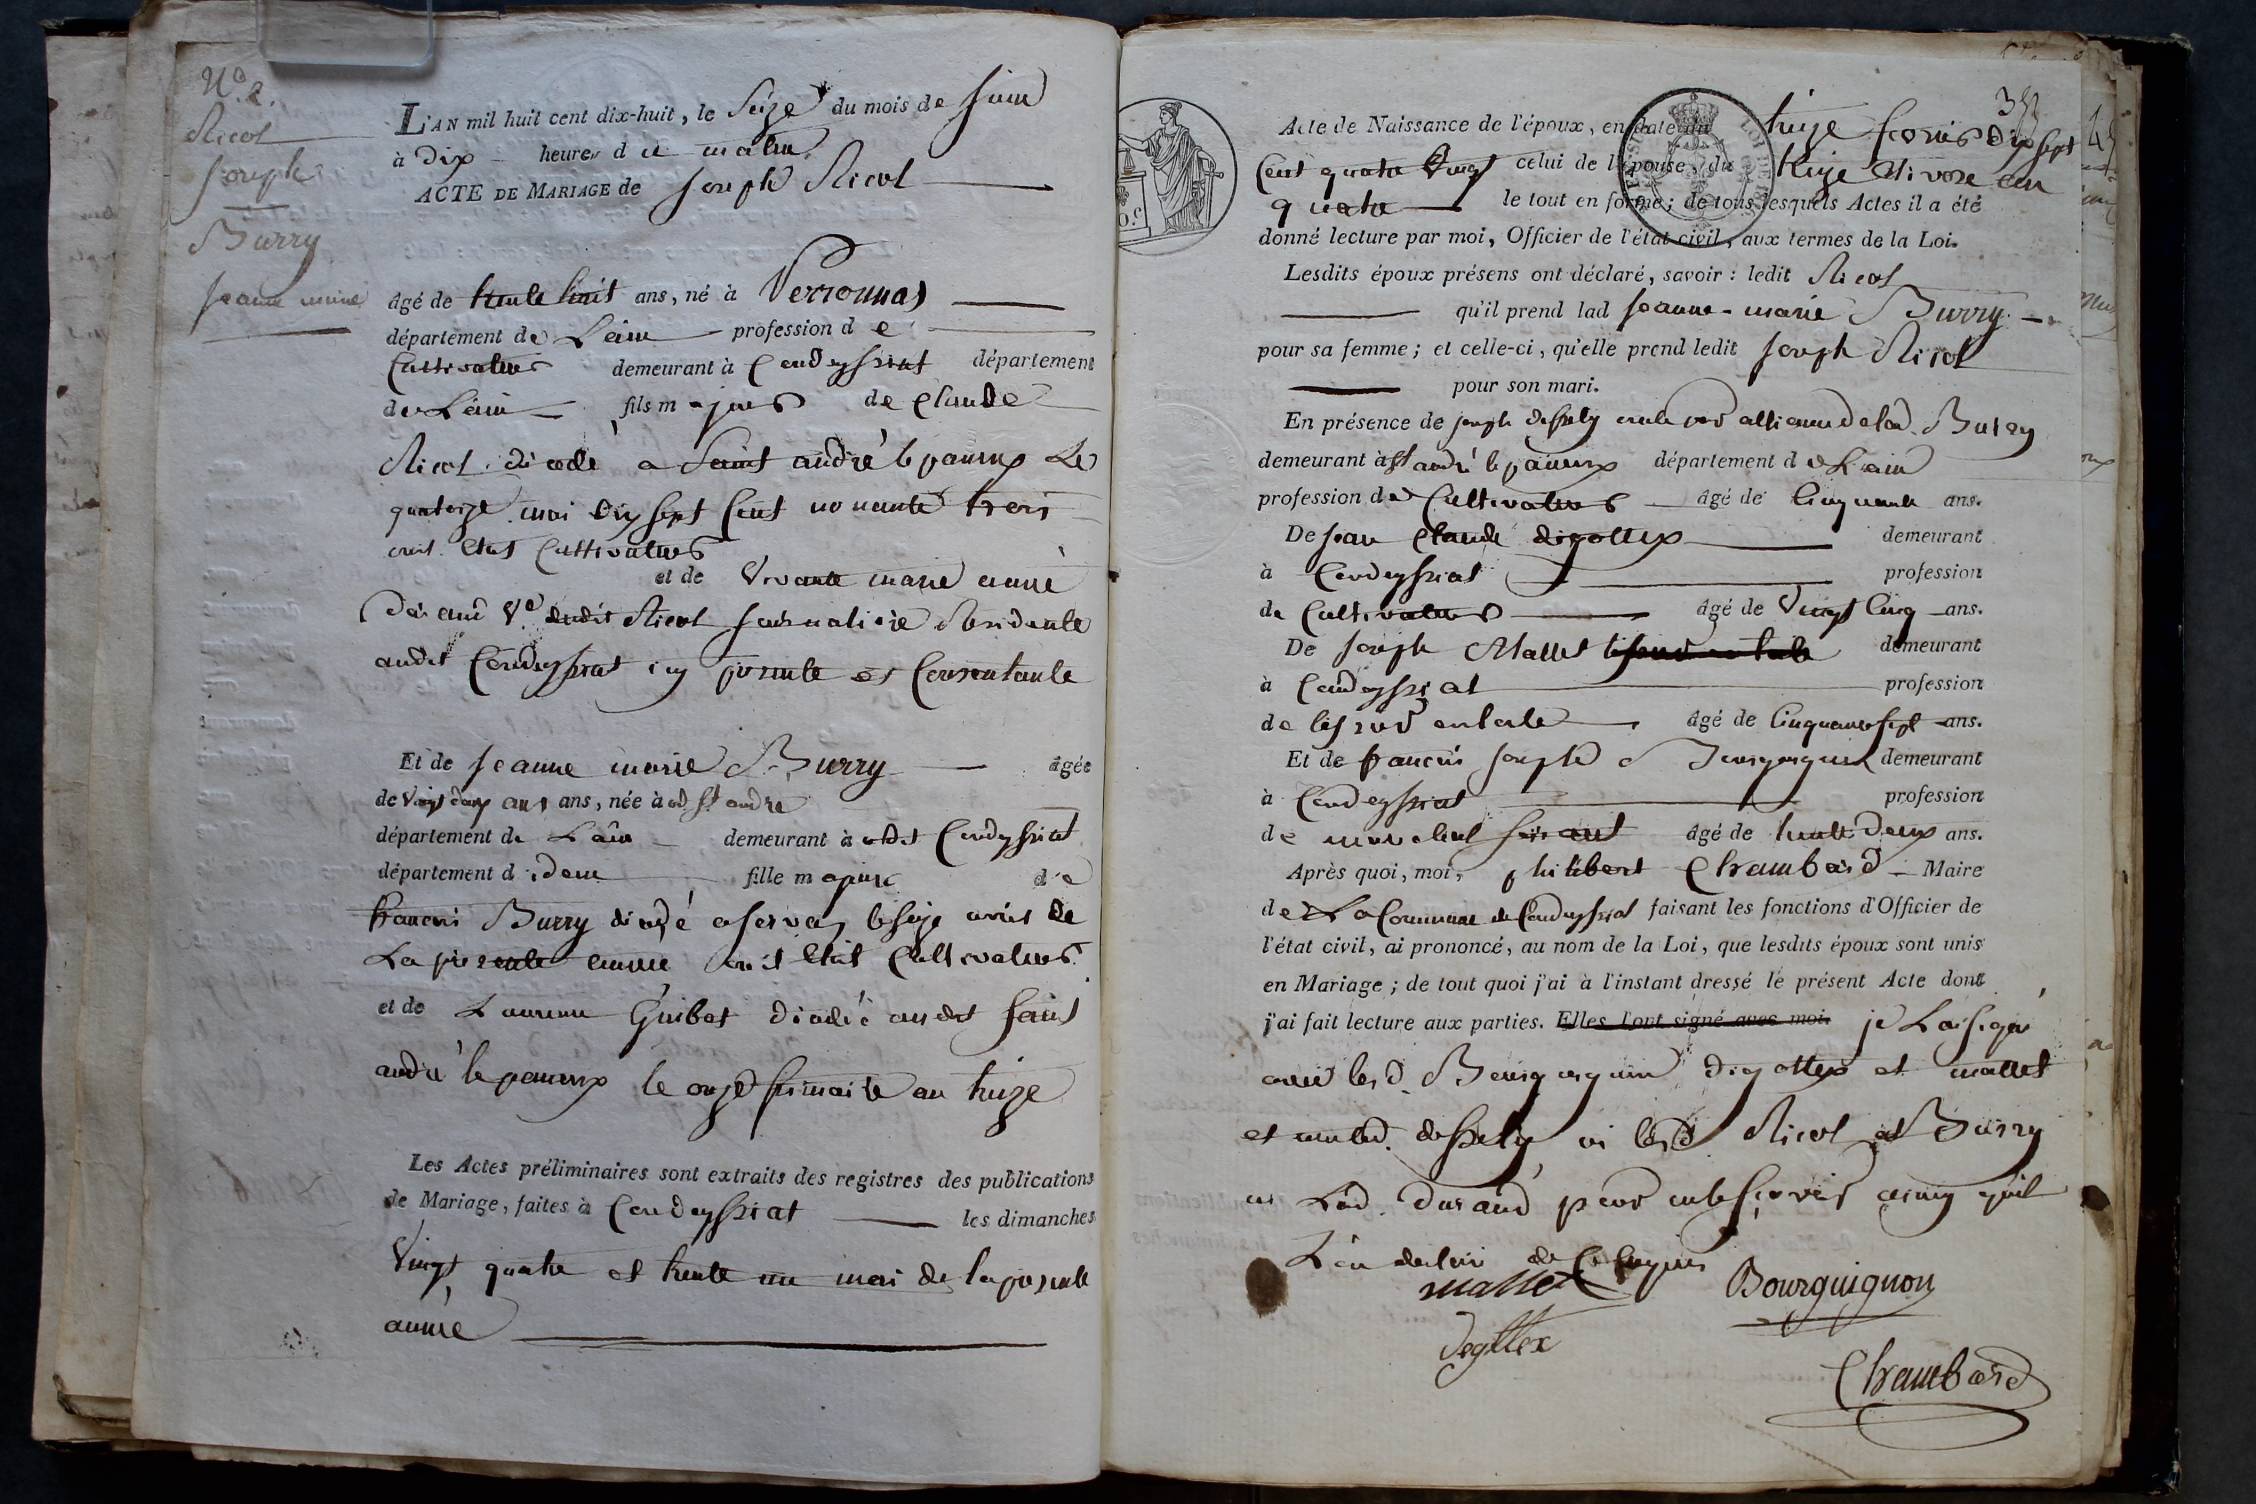 N.o 2.
Nicol
Joseph
Burry
Jeanne marie
L'AN mil huit cent dix-huit, le Seize du mois de Juin
à Dix heures d u matin
ACTE DE MARIAGE de Joseph Nicol
âgé de trente huit ans, né à Perronnas
département de L'ain profession d e
Cultivateur demeurant à Condeyssiat département
de L'ain fils m ajeur de Claude
Nicol, décédé a Saint andré le panoux Le
quatorze mai dix sept Cent nonante trois
Cultivateur
et de Vivante marie anne
V.e dudit Nicol Journalière Résidente
audit Condeyssiat icy présente et Consentante
Et de Jeanne marie Burry âgée
de Vingt deux ans ans, née à St andré
département de L'ain demeurant à Condeyssiat
département d idem fille m ajeure d e
francois Burry décédé a servas le seize avril de
La présente année Cultivateur
et de Laurence Guibot décédée audit Saint
andré le panoux le onze frimaire an treize
Les Actes préliminaires sont extraits des registres des publications
de Mariage, faites à Condeyssiat les dimanches
Vingt quatre et trente un mai de la présente
année
Acte de Naissance de l'époux, en date du treize février dix sept
Cent quatre Vingt celui de l'épouse, du treize Nivose an
quatre le tout en forme; de tous lesquels Actes il a été
donné lecture par moi, Officier de l'état civil, aux termes de la Loi.
Lesdits époux présens ont déclaré, savoir : ledit Nicol
qu'il prend lad Jeanne-marie Burry
pour sa femme; et celle-ci, qu'elle prend ledit Joseph Nicol
pour son mari.
En présence de Joseph dessaly Burry
demeurant à St andré le panoux département d e L'ain
profession de Cultivateur âgé de Cinquante ans.
De Jean Claude digottex demeurant
à Condeyssiat profession
de Cultivateur âgé de Vingt Cinq ans.
De Joseph Mallet demeurant
à Condeyssiat profession
de tisseur en toile âgé de Cinquante sept ans.
Et de francois Joseph Bourguignon demeurant
à Condeyssiat profession
de marechal ferrant âgé de trente Deux ans.
Après quoi, moi, philibert Chambard Maire
de La Commune de Condeyssiat faisant les fonctions d'Officier de
l'état civil, ai prononcé, au nom de la Loi, que lesdits époux sont unis
en Mariage; de tout quoi j'ai à l'instant dressé le présent Acte dont
j'ai fait lecture aux parties. Elles l'ont signé avec moi. je L'ai signé
avec les d. Bourguignon digottex et mallet
et non led. dessaly ni lesd Nicol et Burry
ni Lad. durand pour ainsy qu'il
L'on de Ce Requis
mallet Bourguignon
degottex
Chambard